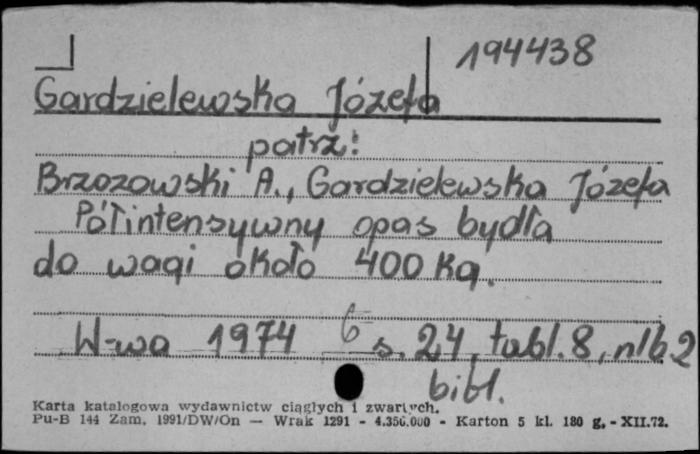 194438
Gardzielewska Józefa
patrz:
Brzozowski A., Gardzielewska Józefa
Półintensywny opas bydła
do wagi około 400 kg.
W-wa 1974 6 s. 24, tabl. 8, nlb 2
bibl.
Karta katalogowa wydawnictw ciągłych i zwartych.
Pu-B 144 Zam. 1991/DW/On — Wrak 1291 - 4.350.000 - Karton 5 kl. 180 g. - XII.72.